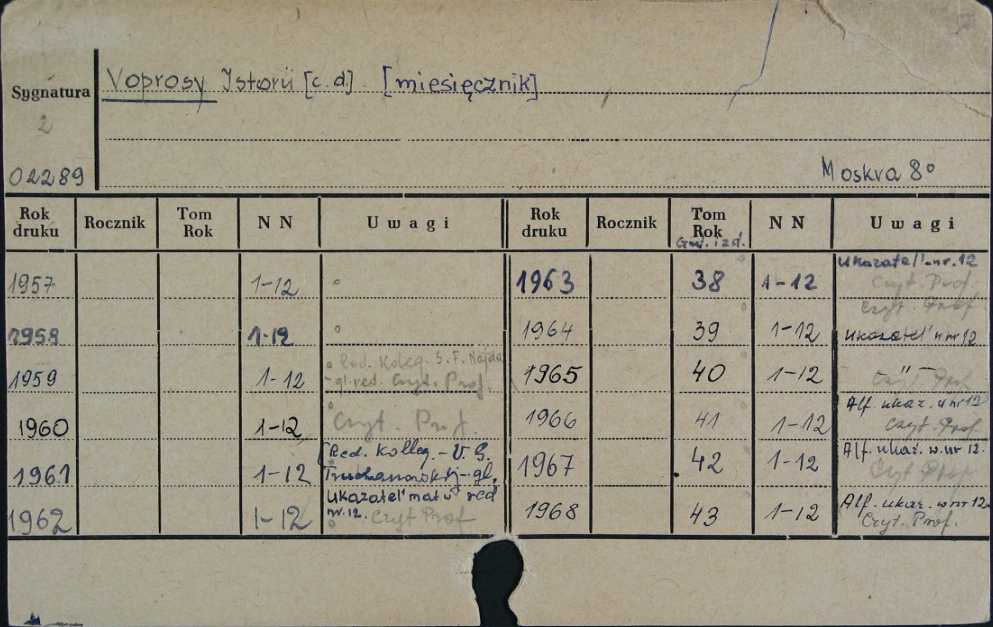 Voprosy Istorii [c.d.] [miesięcznik]
Sygnatura
2
02289
Moskva 8°
Rok druku Rocznik Tom Rok N N Uwagi Rok druku Rocznik Tom Rok N N Uwagi
God. izd.
1957 1-12
1958 1-12
1959 1-12 Red. Koleg. S. F. Najda
gl. red. Czyt. Prof.
1960 1-12 Czyt. Prof.
1961 1-12 Red. Kolleg. - V. G.
Truchanovskij - gl.
red
1962 1-12 Ukazatel' mat v
nr. 12. Czyt Prof
1963 38 1-12 Ukazatel' - nr. 12
Czyt. Prof.
1964 39 1-12 Czyt. Prof.
Ukazatel' w nr 12
1965 40 1-12 — " —
Czyt. Prof
1966 41 1-12 Alf. ukaz. w nr 12
Czyt. Prof.
1967 42 1-12 Alf. ukaz. w. nr 12.
Czyt Prof
1968 43 1-12 Alf. ukaz. w nr 12
Czyt. Prof.